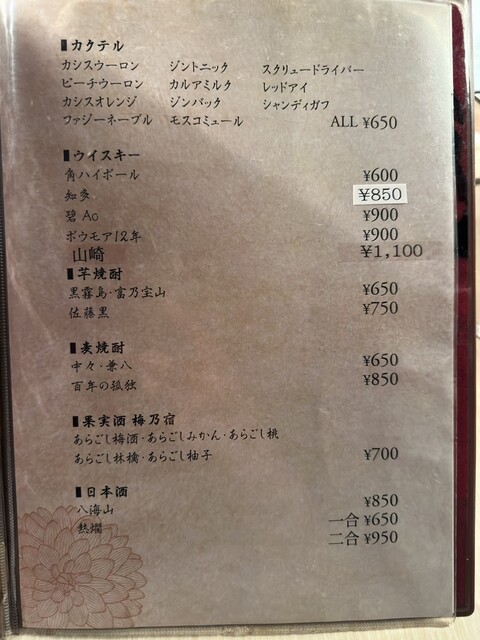 ▮カクテル
カシスウーロン ジントニック スクリュードライバー
ピーチウーロン カルアミルク レッドアイ
カシスオレンジ ジンバック シャンディガフ
ファジーネーブル モスコミュール ALL ¥650
▮ウイスキー
角ハイボール ¥600
知多 ¥850
碧Ao ¥900
ボウモア12年 ¥900
山崎 ¥1,100
▮芋焼酎
黒霧島・富乃宝山 ¥650
佐藤黒 ¥750
▮麦焼酎
中々・兼八 ¥650
百年の孤独 ¥850
▮果実酒 梅乃宿
あらごし梅酒・あらごしみかん・あらごし桃
あらごし林檎・あらごし柚子 ¥700
▮日本酒
八海山 ¥850
熱燗 一合 ¥650
二合 ¥950